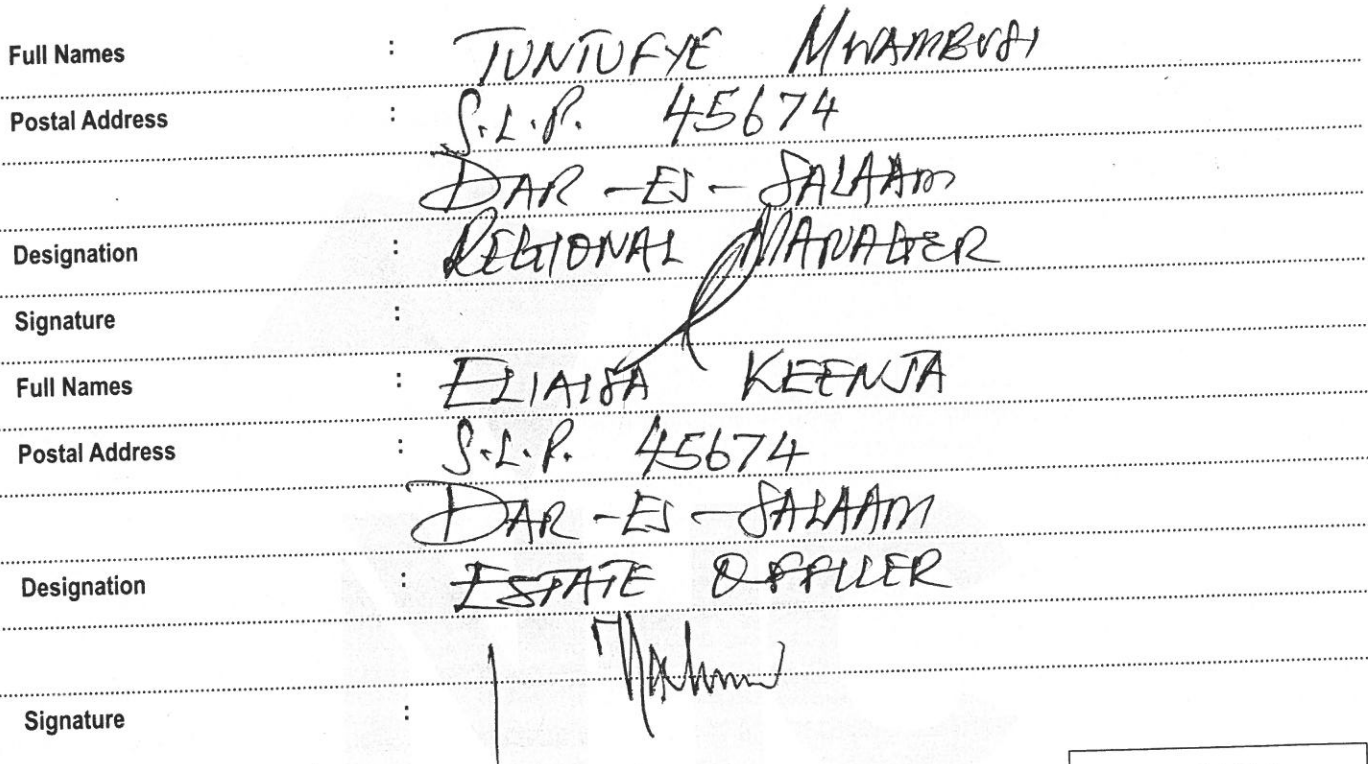 Full Names : TUNTUFYE MWAMBUSI
Postal Address : S.L.P. 45674
DAR-ES-SALAAM
Designation : REGIONAL MANAGER
Signature :
Full Names : ELIAISA KEENJA
Postal Address : S.L.P. 45674
DAR-ES-SALAAM
Designation : ESTATE OFFICER
Signature :